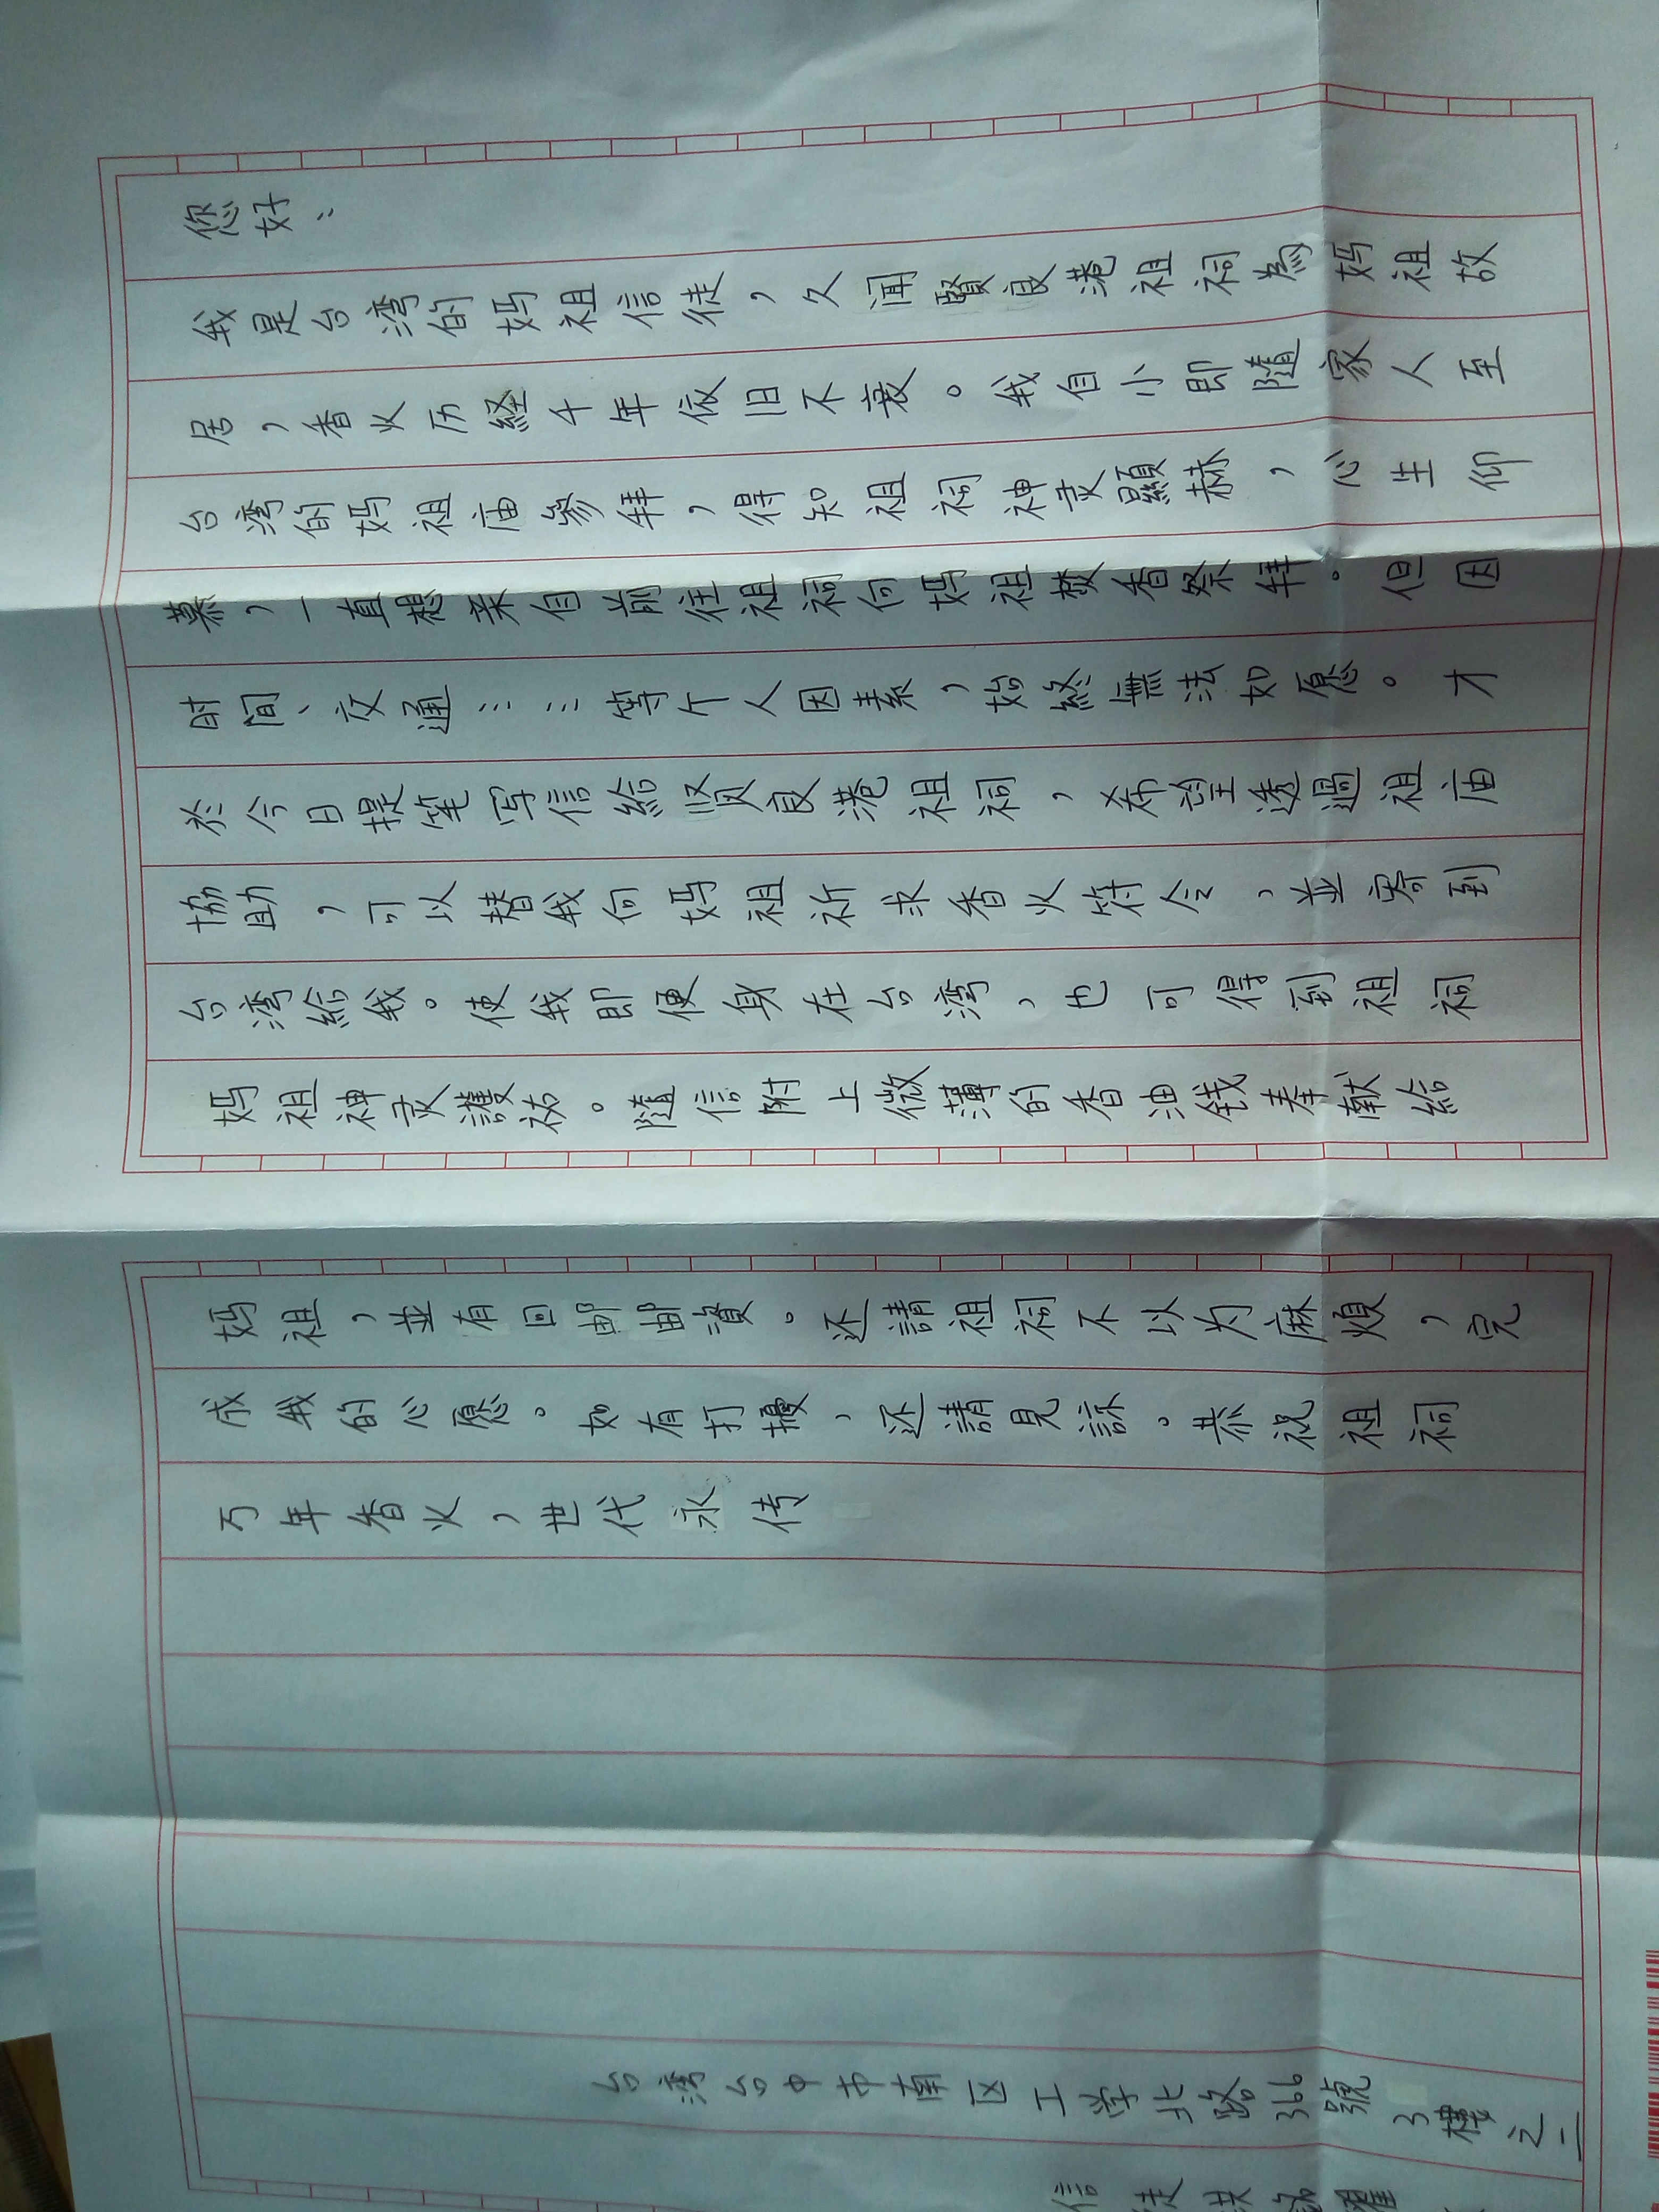 您好：
我是台湾的妈祖信徒，久闻賢良港祖祠為妈祖故
居，香火历經千年依旧不衰。我自小即隨家人至
台湾的妈祖庙參拜，得知祖祠神灵顯赫，心生仰
慕，一直想親自前往祖祠向妈祖撥香祭拜。但因
时间、交通……等个人因素，始終無法如愿。才
於今日提笔写信給贤良港祖祠，希望透過祖庙
協助，可以替我向妈祖祈求香火符令，並寄到
台湾給我。使我即便身在台湾，也可得到祖祠
妈祖神灵護祐。隨信附上微薄的香油钱奉献給
妈祖，並有回邮邮資。还請祖祠不以为麻煩，完
成我的心愿。如有打擾，还請見諒。恭祝祖祠
万年香火，世代永传
台湾台中市南区工学北路366號
3樓之二
信徒洪銘